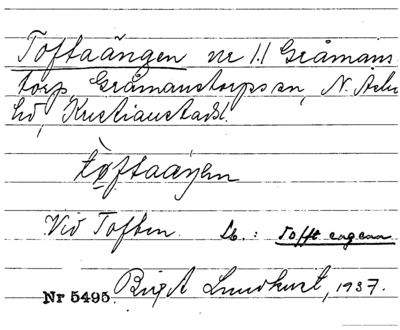 Toftaängen nr 1:1 Gråmans
torp, Gråmanstorps sn, N. Åsbo
hd, Kristianstads l.
tøftaäŋen
Vid Toften. Lb.: Tofft engenn
Nr 5495. Birgit Lundkvist, 1937.